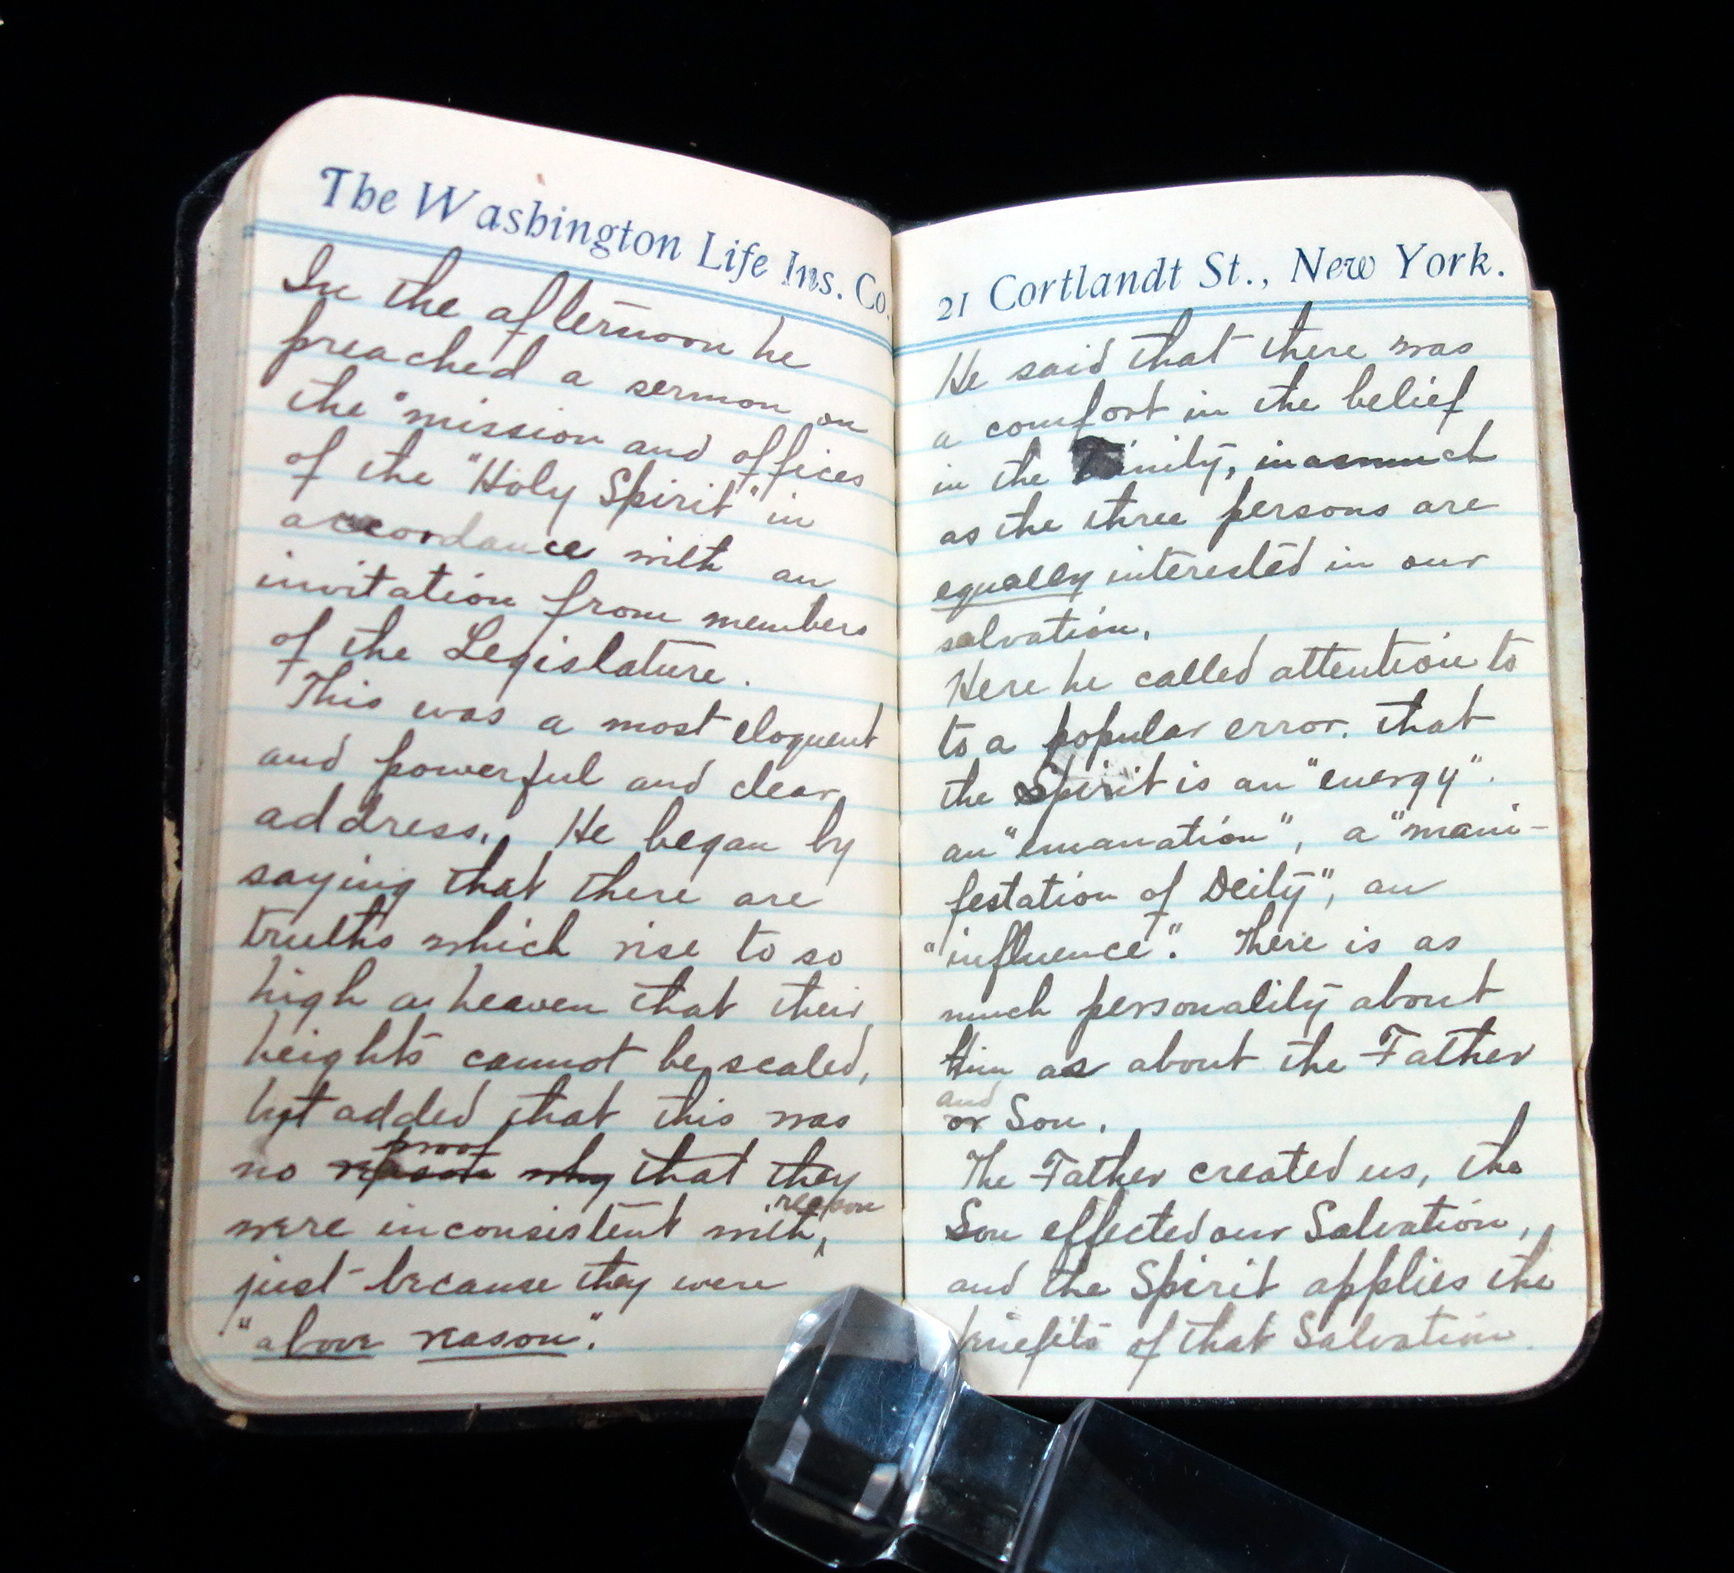 The Washington Life Ins. Co.
In the afternoon he
preached a sermon on
the "mission and offices
of the "Holy Spirit" in
accordance with an
invitation from members
of the Legislature.
This was a most eloquent
and powerful and clear
address. He began by
saying that there are
truths which rise to so
high as heaven that their
heights cannot be scaled,
but added that this was
proof
no reason why that they
reason
were inconsistent with,
just because they were
"above reason".
21 Cortlandt St., New York.
He said that there was
a comfort in the belief
in the Trinity, inasmuch
as the three persons are
equally interested in our
salvation.
Here he called attention to
to a popular error. that
the Spirit is an "energy".
an "emanation", a "mani-
festation of Deity", an
"influence". There is as
much personality about
Him as about the Father
and
or Son.
The Father created us, the
Son effected our Salvation,
and the Spirit applies the
benefits of that Salvation.